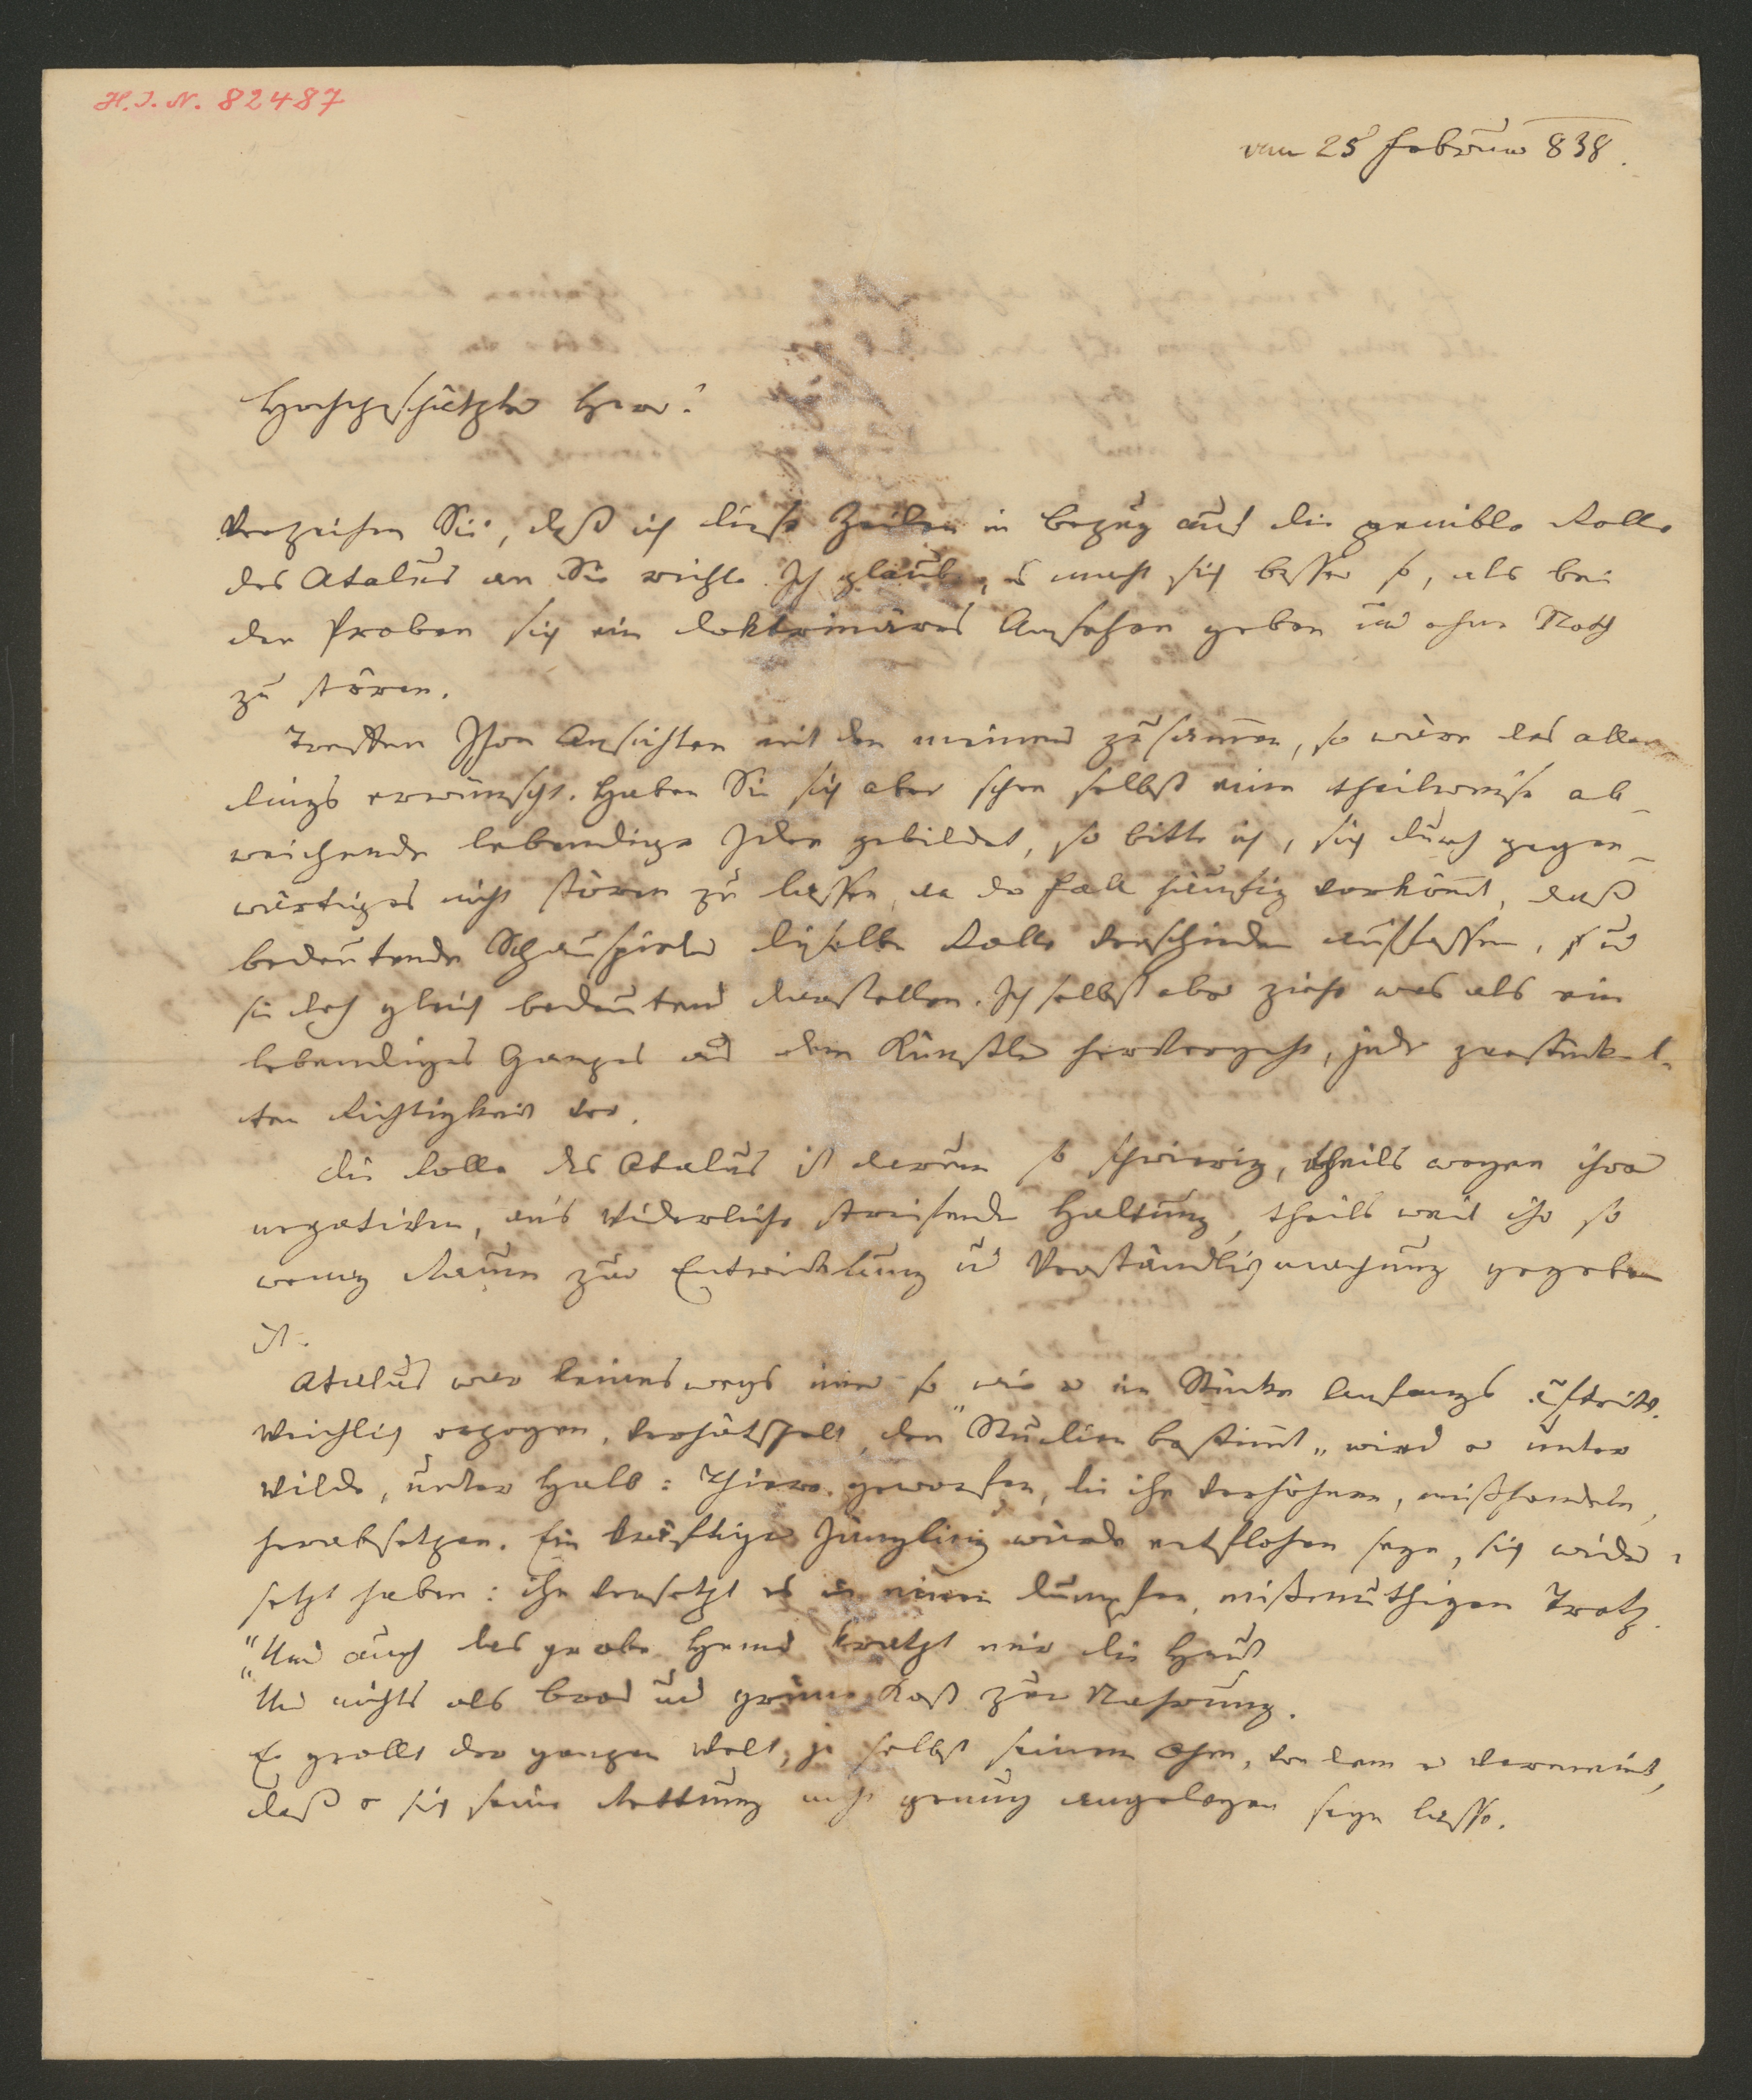 H. I. N. 82487
vom 25 Februar 838.
Hochgeschätzter Herr!
Verzeihen Sie, daß ich diese Zeilen in Bezug auf die penible Rolle
des Atalus an Sie richte. Ich glaube, es macht sich besser so, als bei
den Proben sich ein doktrinäres Ansehen geben und ohne Noth
zu stören.
Treffen Ihre Ansichten mit den meinen zusam̄en, so wäre das aller-
dings erwünscht. Haben Sie sich aber schon selbst eine theilweise ab-
weichende lebendige Idee gebildet, so bitte ich, sich durch gegen-
wärtiges nicht stören zu lassen, da der Fall häufig vorköm̄t, daß
bedeutende Schauspieler dieselbe Rolle verschieden auffassen, und
sie doch gleich bedeutend darstellen. Ich selbst aber ziehe was als ein
lebendiges Ganzes aus dem Künstler hervorgeht, jeder zerstückel-
ten Richtigkeit vor.
Die Rolle des Atalus ist darum so schwierig, theils wegen ihrer
negativen, an's Widerliche streifenden Haltung, theils weil ihr so
wenig Raum zur Entwicklung u Verständlichmachung gegeben
ist.
Atalus war keineswegs im̄er so wie er im Stücke Anfangs auftritt.
Weichlich erzogen, verhätschelt, den "Studien bestim̄t" wird er unter
Wilde, unter Halb=Thiere geworfen, die ihn verhöhnen, mißhandeln,
herabsetzen. Ein kräftiger Jüngling würde entflohen seyn, sich wider=
setzt haben: ihn versetzt es in einen dumpfen, mißmuthigen Trotz.
"Und auch das grobe Hemd kratzt mir die Haut
"Und nichts als Brod und grüne Kost zur Nahrung.
Er grollt der ganzen Welt, ja selbst seinem Ohm, von dem er vermeint,
daß er sich seine Rettung nicht genug angelegen seyn lasse.